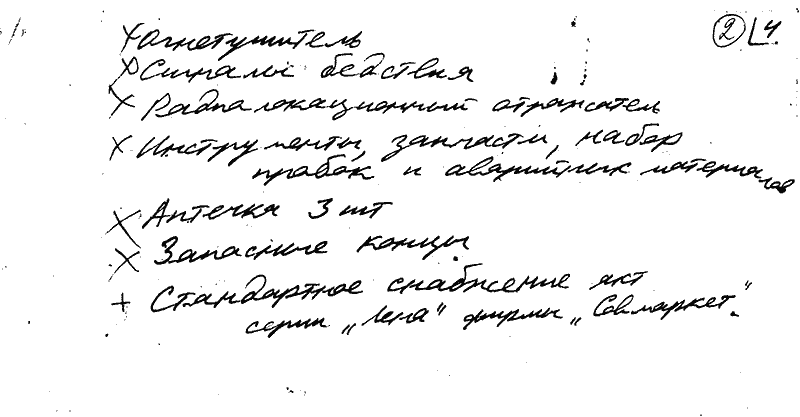 ② 4
х Огнетушитель
х Сигналы бедствия
х Радиолокационный отражатель
х Инструменты, запчасти, набор
пробок и аварийных материалов
х Аптечка 3 шт
х Запасные концы
+ Стандартное снабжение яхт
серии „Лена" фирмы „Совмаркет".